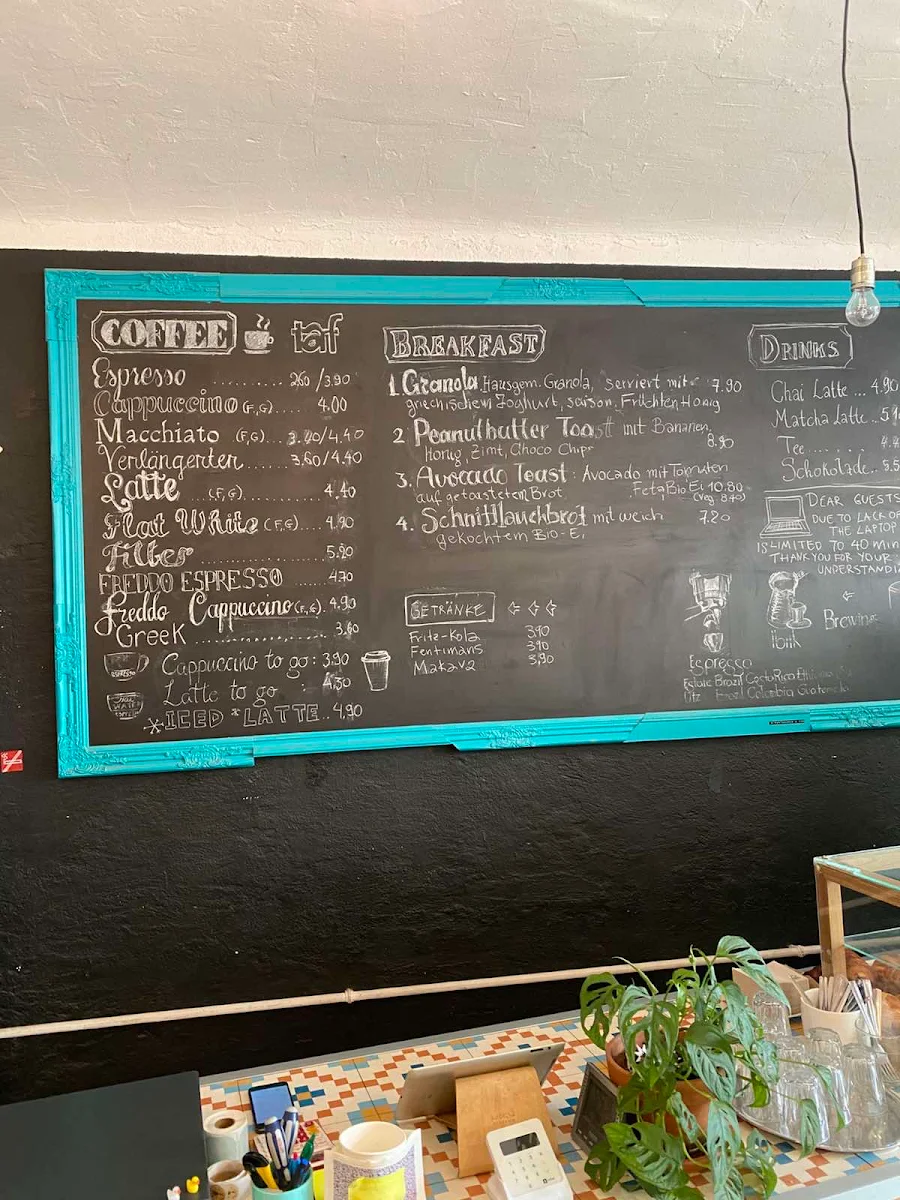 COFFEE
taf
Espresso ........... 2.60/3.90
Cappuccino (F,G)..... 4.00
Macchiato (F,G)... 3.20/4.40
Verlängerter....... 3.60/4.40
Latte (F,G)............... 4.40
Flat White (F,G).... 4.90
Filter ................. 5.20
FREDDO ESPRESSO ...... 4.70
Freddo Cappuccino (F,G). 4.90
Greek ..................... 3.60
Cappuccino to go: 3.90
Latte to go : 4.30
*ICED *LATTE.. 4.90
BREAKFAST
1. Granola Hausgem. Granola, serviert mit 7.90
griechischem Joghurt, saison. Früchten Honig
2 Peanutbutter Toast mit Bananen,
Honig, Zimt, Choco Chips 8.90
3. Avocado Toast: Avocado mit Tomaten
auf getoasteten Brot Feta Bio Ei 10.80
(Veg. 8.40)
4. Schnittlauchbrot mit weich 7.20
gekochtem Bio-Ei
GETRÄNKE
Fritz-Kola 3.90
Fentimans 3.90
Makava 3,90
DRINKS
Chai Latte... 4.90
Matcha Latte..
Tee........
Schokolade..
DEAR GUESTS
DUE TO LACK OF
THE LAPTOP
IS LIMITED TO 40 MIN
THANK YOU FOR YOUR
UNDERSTANDI
Ibrik
Brewing
Espresso
Brazil Costa Rica
Brazil Colombia Guatemala